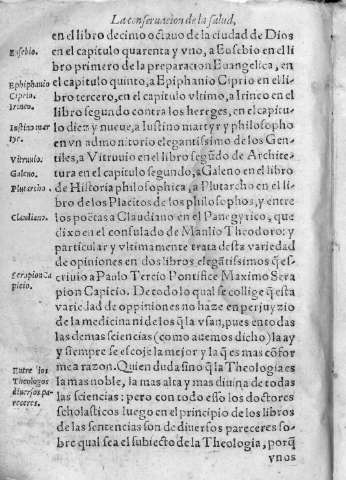 La conseruacion de la salud,
en el libro decimo octauo de la ciudad de Dios
Eusebio.
en el capitulo quarenta y vno, a Eusebio en el li
bro primero de la preparacion Euangelica, en
Ephiphanio
Ciprio.
el capitulo quinto, a Epiphanio Ciprio en el li-
bro tercero, en el capitulo vltimo, a Irineo en el
Irineo.
libro segundo contra los hereges, en el capitu-
Iustino mar
tyr.
lo diez y nueue, a Iustino martyr y philosopho
en vn admonitorio elegantissimo de los Gen-
Vitruuio.
tiles, a Vitruuio en el libro segũdo de Archite-
Galeno.
tura en el capitulo segundo, a Galeno en el libro
Plutarcho.
de Historia philosophica, a Plutarcho en el li-
bro de los Placitos de los philosophos, y entre
Claudiano.
los poëtas a Claudiano en el Panegytico, que
dixo en el consulado de Manlio Theodoro: y
particular y vltimamente trata desta variedad
de opiniones en dos libros elegãtissimos q̃ es-
Serapion Ca
picio.
criuio a Paulo Tercio Pontifice Maximo Sera
pion Capicio. De todo lo qual se collige q̃ esta
variedad de oppiniones no haze en perjuyzio
de la medicina ni de los q̃ la vsan, pues en todas
las demas sciencias (como auemos dicho) la ay
y siempre se escoje la mejor y la q̃ es mas cõfor
Entre los
Theologos
diuersos pa-
receres.
me a razon. Quien duda sino q̃ la Theologia es
la mas noble, la mas alta y mas diuina de todas
las sciencias: pero con todo esso los doctores
scholasticos luego en el principio de los libros
de las sentencias son de diuersos pareceres so-
bre qual sea el subiecto de la Theologia, porq̃
vnos